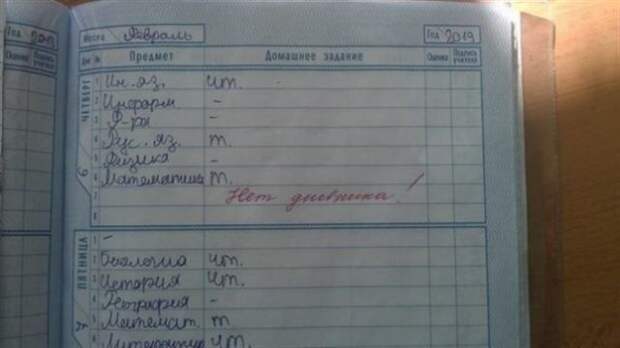 Год 2019
Месяц Февраль Год 2019
Оценка Подпись учителя Дни № Предмет Домашнее задание Оценка Подпись учителя
ЧЕТВЕРГ
1 Ин. яз. чт.
2 Информ. -
3 Ф-ра -
4 Рус. яз. т.
5 Физика -
6 Математика т.
7 Нет дневника!
8
ПЯТНИЦА
1 -
2 Биология чт.
3 История чт.
4 География -
5 Математ. т
6 Литератур чт.